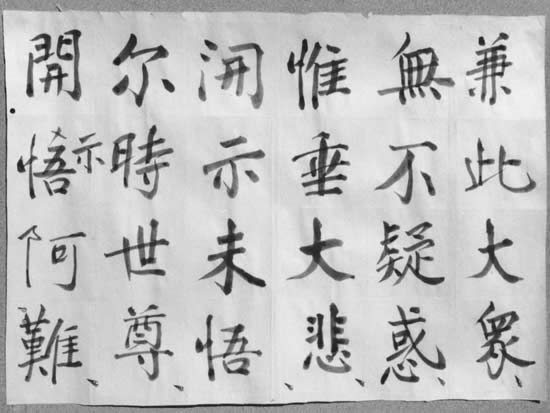 兼此大眾、
無不疑惑、
惟垂大悲、
開示未悟、
尔時世尊、
開悟示阿難、